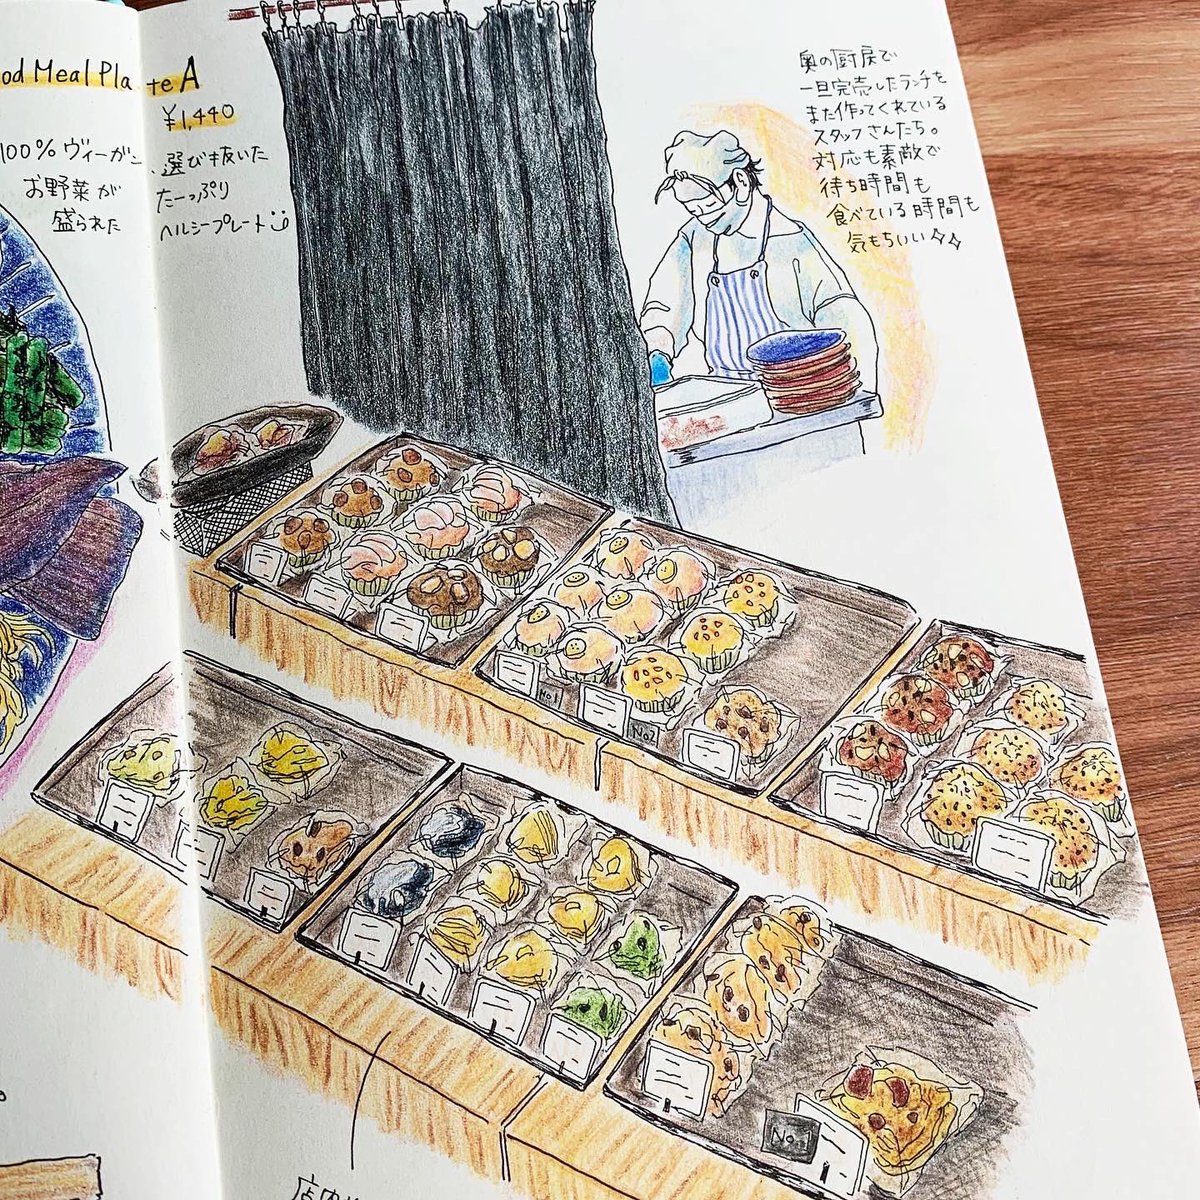 od Meal Plate A
¥1,440
100%ヴィーガン
お野菜が
盛られた
選び抜いた
たーっぷり
ヘルシープレート
奥の厨房で
一旦完売したランチを
また作ってくれている
スタッフさんたち。
対応も素敵で
待ち時間も
食べている時間も
気もちいい
No.1
No.2
No.1
店内